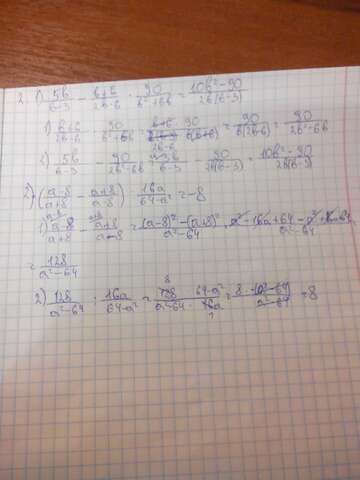 2. 1) 5b/(b-3) - (b+6)/(2b-6) · 90/(b²+6b) = (10b²-90)/(2b(b-3))
1) (b+6)/(2b-6) · 90/(b²+6b) = 90/(b(2b-6)) = 90/(2b²-6b)
2) 5b/(b-3) - 90/(2b²-6b) = 5b/(b-3) - 90/(2b(b-3)) = (10b²-90)/(2b(b-3))
2) ((a-8)/(a+8) - (a+8)/(a-8)) : 16a/(64-a²) = -8
1) (a-8)/(a+8) - (a+8)/(a-8) = ((a-8)²-(a+8)²)/(a²-64) = (a²-16a+64-a²-16a+64)/(a²-64)
= 128/(a²-64)
2) 128/(a²-64) : 16a/(64-a²) = (128 · 64-a²)/(a²-64 · 16a) = (8 · -(a²-64))/(a²-64) = 8